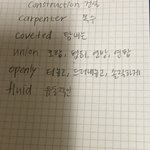 construction 건설
carpenter 목수
coveted 탐내는
union 조합, 협회, 연방, 연합
openly 터놓고, 드러내놓고, 솔직하게
fluid 유동적인